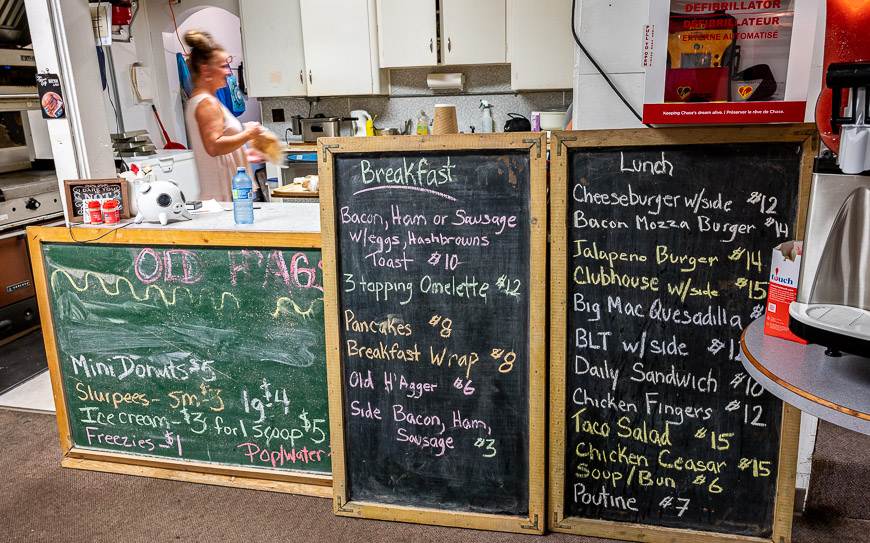 DEFIBRILLATOR
DÉFIBRILLATEUR
EXTERNE AUTOMATISÉ
Keeping Chase's dream alive. Préserver le rêve de Chase.
NOT
OLD H'AGS
Mini Donuts $5
Slurpees - sm $3 lg $4
Ice cream - $3 for 1 scoop $5
Freezies - $1
Pop/Water -
Breakfast
Bacon, Ham or Sausage
w/eggs, Hashbrowns
Toast $10
3 topping Omelette $12
Pancakes $8
Breakfast Wrap $8
Old H'Agger $6
Side Bacon, Ham,
Sausage $3
Lunch
Cheeseburger w/side $12
Bacon Mozza Burger $14
Jalapeno Burger $14
Clubhouse w/side $15
Big Mac Quesadilla
BLT w/side
Daily Sandwich $10
Chicken Fingers $12
Taco Salad $15
Chicken Ceasar $15
Soup/Bun $6
Poutine $7
touch